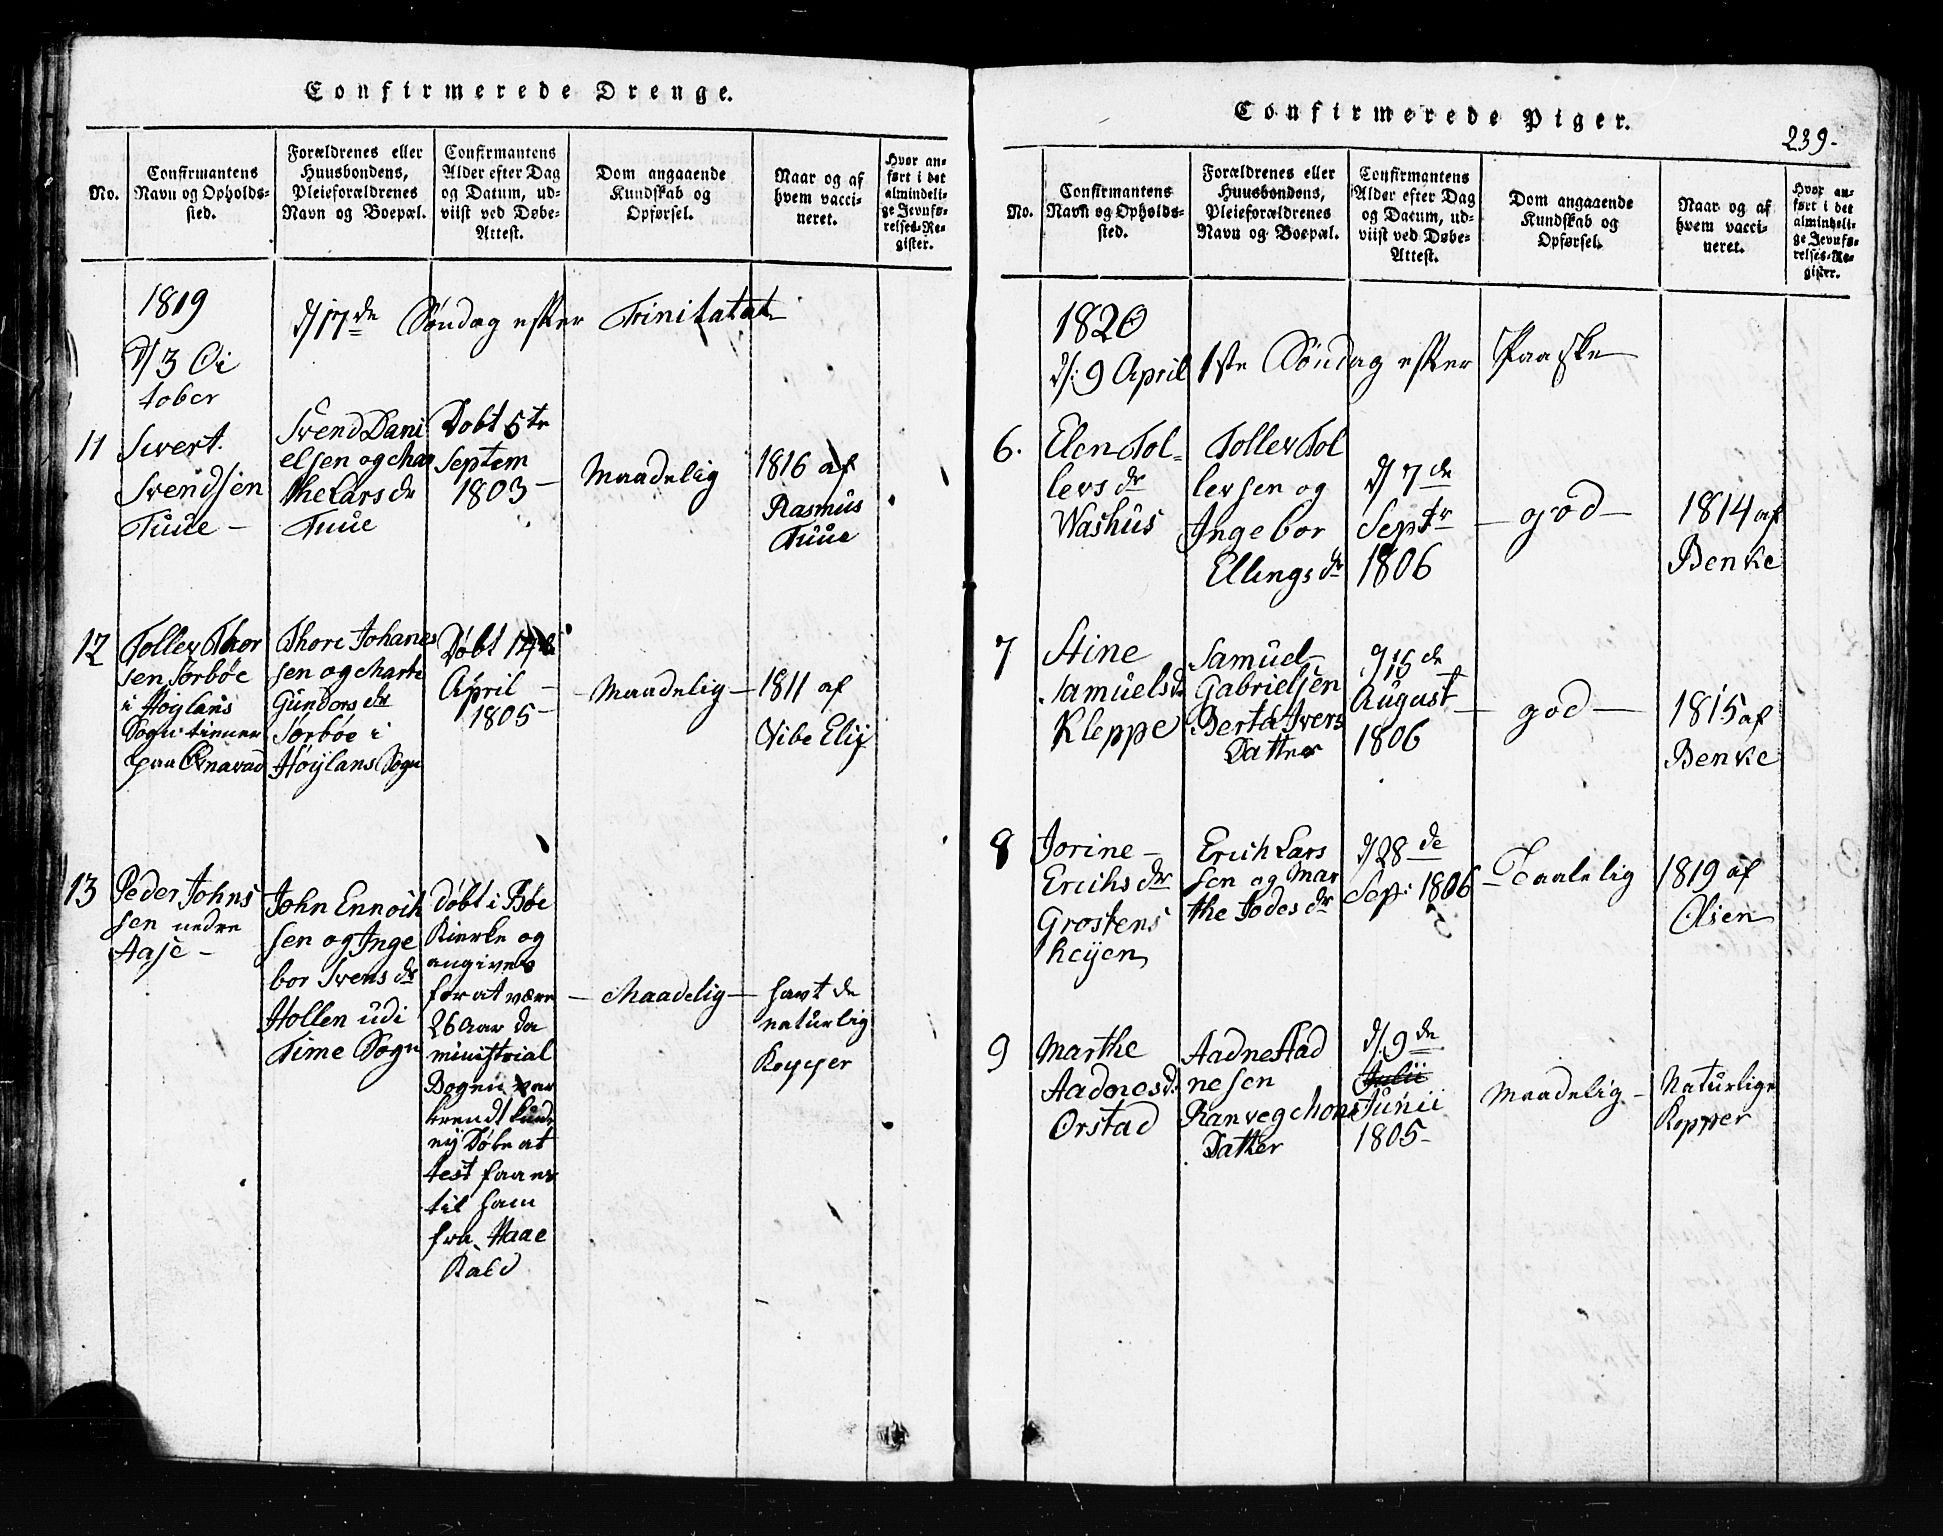 Confirmerede Drenge.
No.
Confirmantens
Navn og Opholds-
sted.
Forældrenes eller
Huusbondens,
Pleieforældrenes
Navn og Boepæl.
Confirmantens
Alder efter Dag
og Datum, ud-
viist ved Døbe-
Attest.
Dom angaaende
Kundskab og
Opførsel.
Naar og af
hvem vacci-
neret.
Hvor an-
ført i det
almindeli-
ge Jevnfø-
relses-Re-
gister.
1819
d/3 Oc
tober
d/17de Søndag efter Trinitatat
11
Sivert
Svendsen
Tuue
Svend Dani
elsen og Mar
the Lars dr
Tuue
Døbt 5te
Septem
1803
Maadelig
1816 af
Rasmus
Tuue
12
Tollev Thor
sen Sørbøe
i Høylans
Sogn tiener
paa
Thore Johanes
sen og Marte
Gundors dr
Sørbøe i
Høylans Sogn
Døbt 14de
April
1805
Maadelig
1811 af
Vibe
13
Peder Johns
sen nedre
Aase
John Ennoch
sen og Inge
bor Svens dr
Hollen udi
Time Sogn
døbt i Bøe
Kierke og
angives
for at være
26 Aar da
ministrial
Bogen var
brendt kunde
ej Døbe at
test faaes
til ham
fra Haae
Kald
Maadelig
havt de
naturlig
Kopper
Confirmerede Piger.
239.
No.
Confirmantens
Navn og Opholds-
sted.
Forældrenes eller
Huusbondens,
Pleieforældrenes
Navn og Boepæl.
Confirmantens
Alder efter Dag
og Datum, ud-
viist ved Døbe-
Attest.
Dom angaaende
Kundskab og
Opførsel.
Naar og af
hvem vacci-
neret.
Hvor an-
ført i det
almindeli-
ge Jevnfø-
relses-Re-
gister.
1820
d/: 9 April 1ste Søndag efter Paaske
6.
Elen Tol-
levs dr
Washus
Tollev Tol
levsen og
Ingebor
Ellings dr
d/7de
Septr
1806
god
1814 af
Benke
7
Stine
Samuels dr
Kleppe
Samuel
Gabrielsen
Berta Ivers
Datter
d/15de
August
1806
god
1815 af
Benke
8
Jorine
Erichs dr
Grostens
heyen
Erich Lars
sen og Mar
the Jodes dr
d/28de
Sep: 1806
Taalelig
1819 af
Olsen
9
Marthe
Aadnes d:
Orstad
Aadne Aad
nesen
Ranveg Mons
Datter
d/9de
Julii
Junii
1805
Maadelig
Naturlige
Kopper